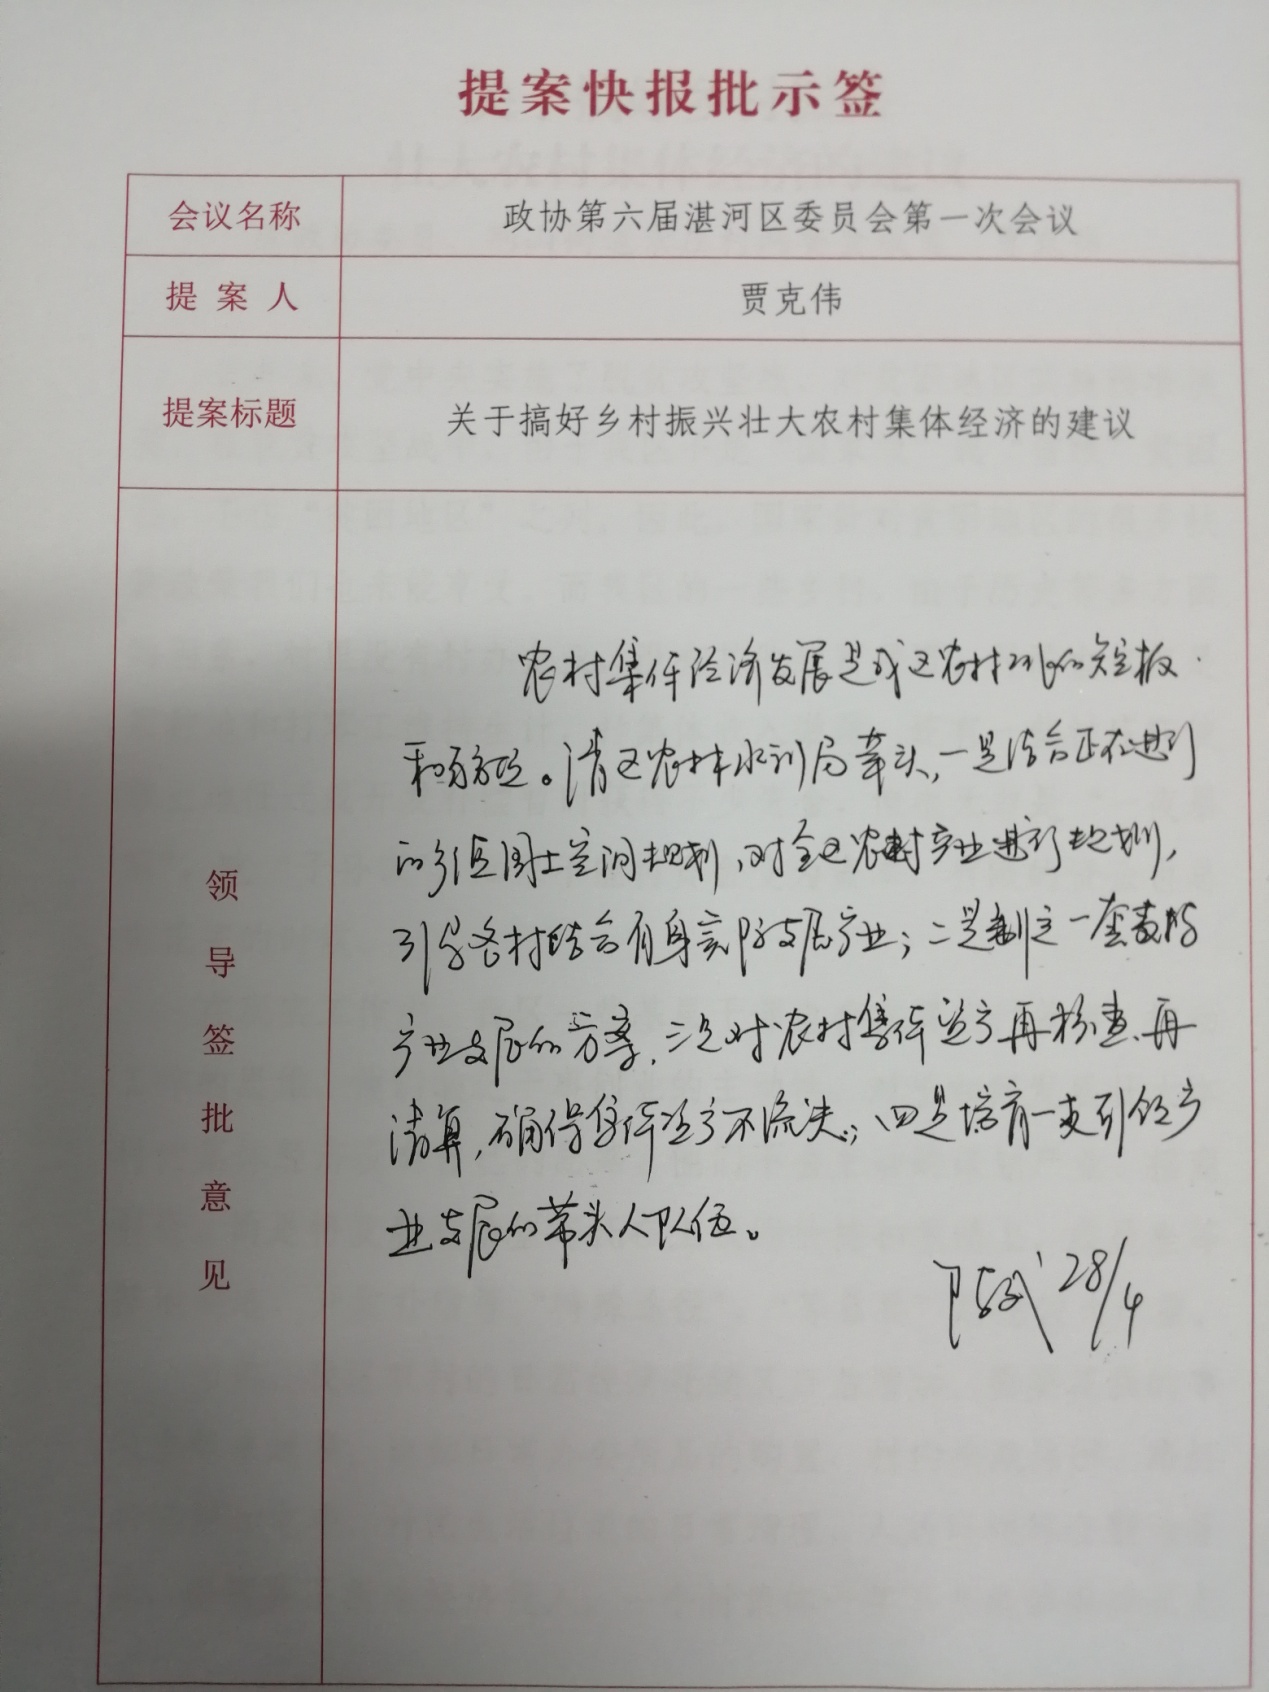 提案快报批示签
会议名称
政协第六届湛河区委员会第一次会议
提案人
贾克伟
提案标题
关于搞好乡村振兴壮大农村集体经济的建议
领导签批意见
农村集体经济发展是我区农村工作的短板
和弱项。请区农林水利局牵头,一是结合正在进行
的我区国土空间规划,对全区农村产业进行规划,
引导各村结合自身实际发展产业;二是制定一套支持
产业发展的方案,三是对农村集体资产再核查、再
清算,确保集体资产不流失;四是培育一支引领产
业发展的带头人队伍。
28/4